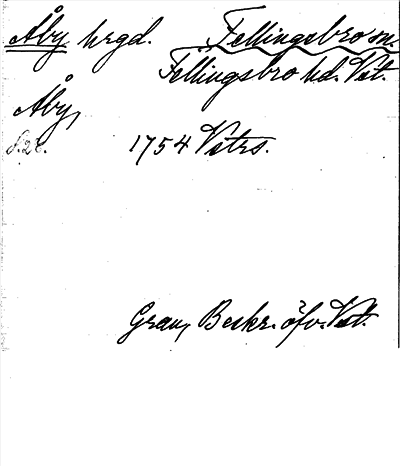 Åby hrgd. Fellingsbro sn.
Fellingsbro hd. Vstl.
Åby,
1754 Vstrs.
Grau, Beskr. öfv. Vstl.